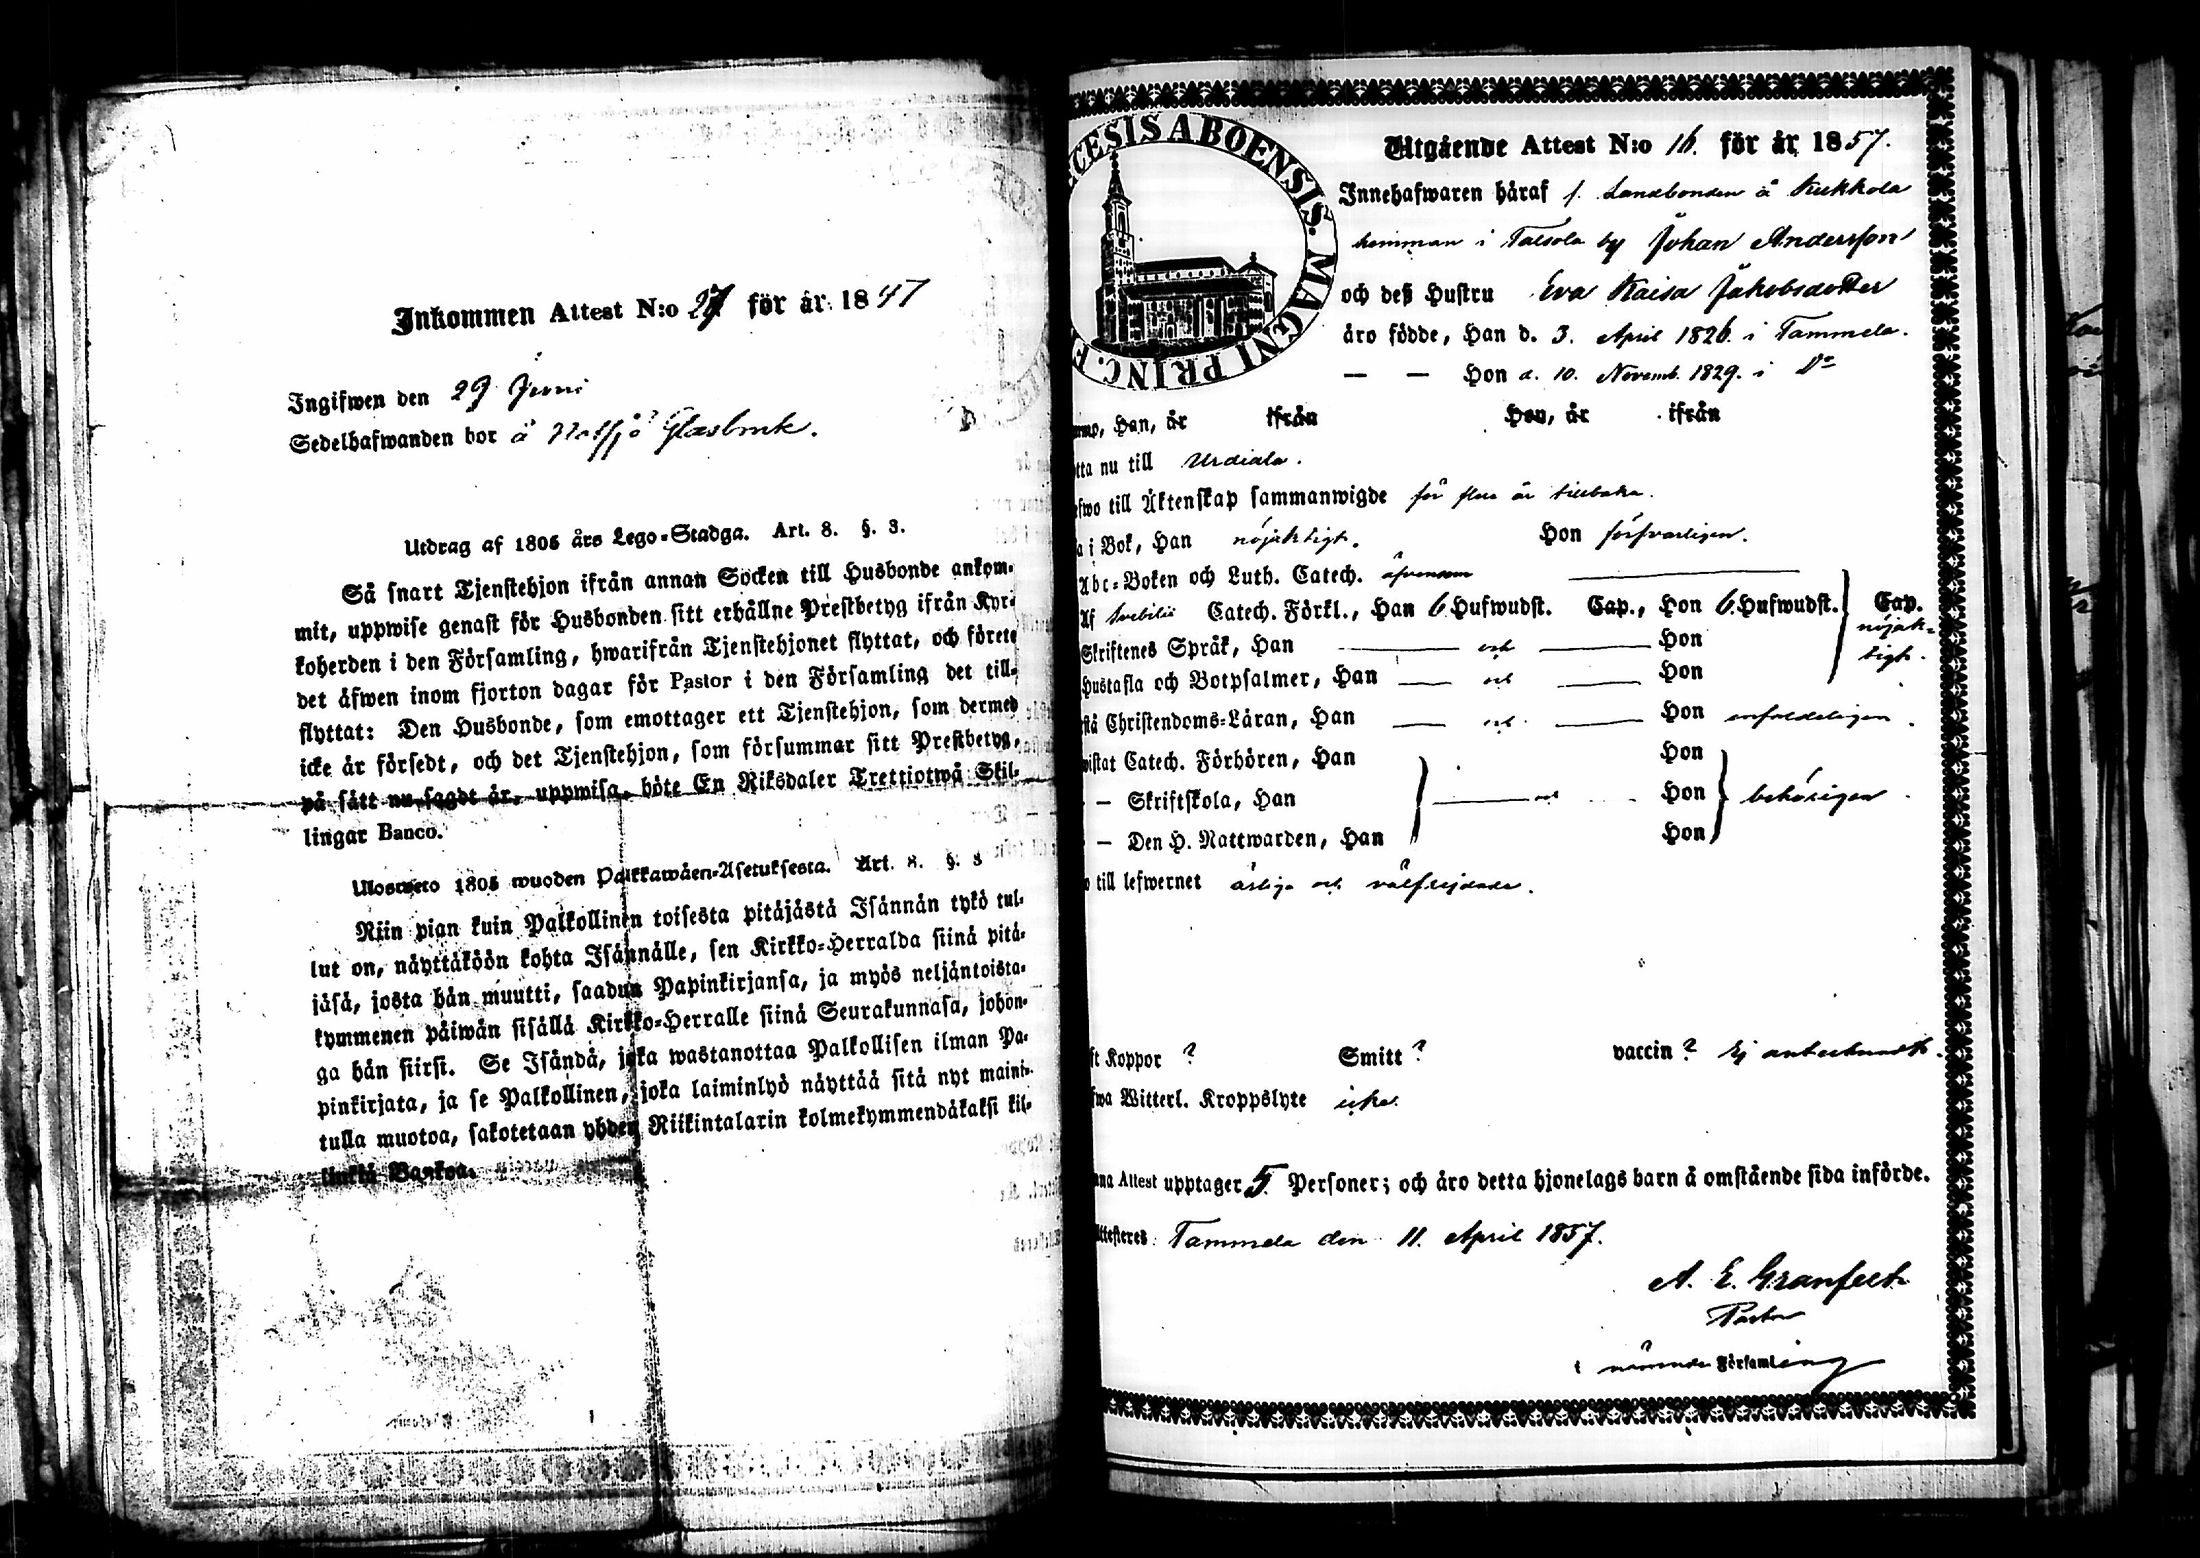 Inkommen Attest N:o 27 för år 1847
Ingifwen den 29 Juni
Sedelhafwanden bor å Notsjö Glasbruk.
Utdrag af 1805 års Lego-Stadga. Art. 8. §. 3.
Så snart Tjenstehjon ifrån annan Socken till Husbonde ankom-
mit, uppwise genast för Husbonden sitt erhållne Prestbetyg ifrån Kyr-
koherden i den Församling, hwarifrån Tjenstehjonet flyttat, och förete
det äfwen inom fjorton dagar för Pastor i den Församling det till-
flyttat: Den Husbonde, som emottager ett Tjenstehjon, som dermed
icke är försedt, och det Tjenstehjon, som försummar sitt Prestbetyg,
på sätt nu sagdt är, uppwisa, böte En Riksdaler Trettiotwå Skil-
lingar Banco.
Ulosweto 1805 wuoden Palkkawäen-Asetuksesta. Art. 8. §. 3
Niin pian kuin Palkollinen toisesta pitäjästä Isännän tykö tul-
lut on, näyttäköön kohta Isännälle, sen Kirkko-Herralda siinä pitä-
jäsä, josta hän muutti, saadun Papinkirjansa, ja myös neljäntoista-
kymmenen päiwän sisällä Kirkko-Herralle siinä Seurakunnasa, johon-
ga hän siirsi. Se Isändä, joka wastanottaa Palkollisen ilman Pa-
pinkirjata, ja se Palkollinen, joka laiminlyö näyttää sitä nyt maini-
tulla muotoa, sakotetaan yhden Riikintalarin kolmekymmendäkaksi kil-
linkiä Bankoa.
DIŒCESIS ABOENSIS. MAGNI PRINC. F
Utgående Attest N:o 16. för år 1857.
Innehafwaren häraf f. Landbonden å Kukkola
hemman i Talsola by Johan Andersson
och deß Hustru Eva Kaisa Jakobsdotter
äro födde, Han d. 3. April 1826. i Tammela.
— — Hon d. 10. Novemb. 1829. i Do
Han, år ifrån Hon, år ifrån
tta nu till Urdiala.
efwo till Äktenskap sammanwigde för flere år tillbaka.
a i Bok, Han nöjaktigt. Hon försvarligen.
Abc-Boken och Luth. Catech. äfvensom
Af Svebilii Catech. Förkl., Han 6. Hufwudst. Cap., Hon 6. Hufwudst. Cap.
nöjak-
tigt.
Skriftenes Språk, Han och Hon
Hustafla och Botpsalmer, Han — och — Hon
stå Christendoms-Läran, Han — och — Hon enfaldeligen.
wistat Catech. Förhören, Han Hon
— Skriftskola, Han — och — Hon behörigen.
— Den H. Nattwarden, Han Hon
o till lefwernet ärliga och välfrejdade.
st Koppor ? Smitt ? vaccin ? Ej antecknadt.
fwa Witterl. Kroppslyte icke.
nna Attest upptager 5. Personer; och äro detta hjonelags barn å omstående sida införde.
Attesteres Tammela den 11. April 1857.
A. E. Granfelt
Pastor
i nämnde Församling